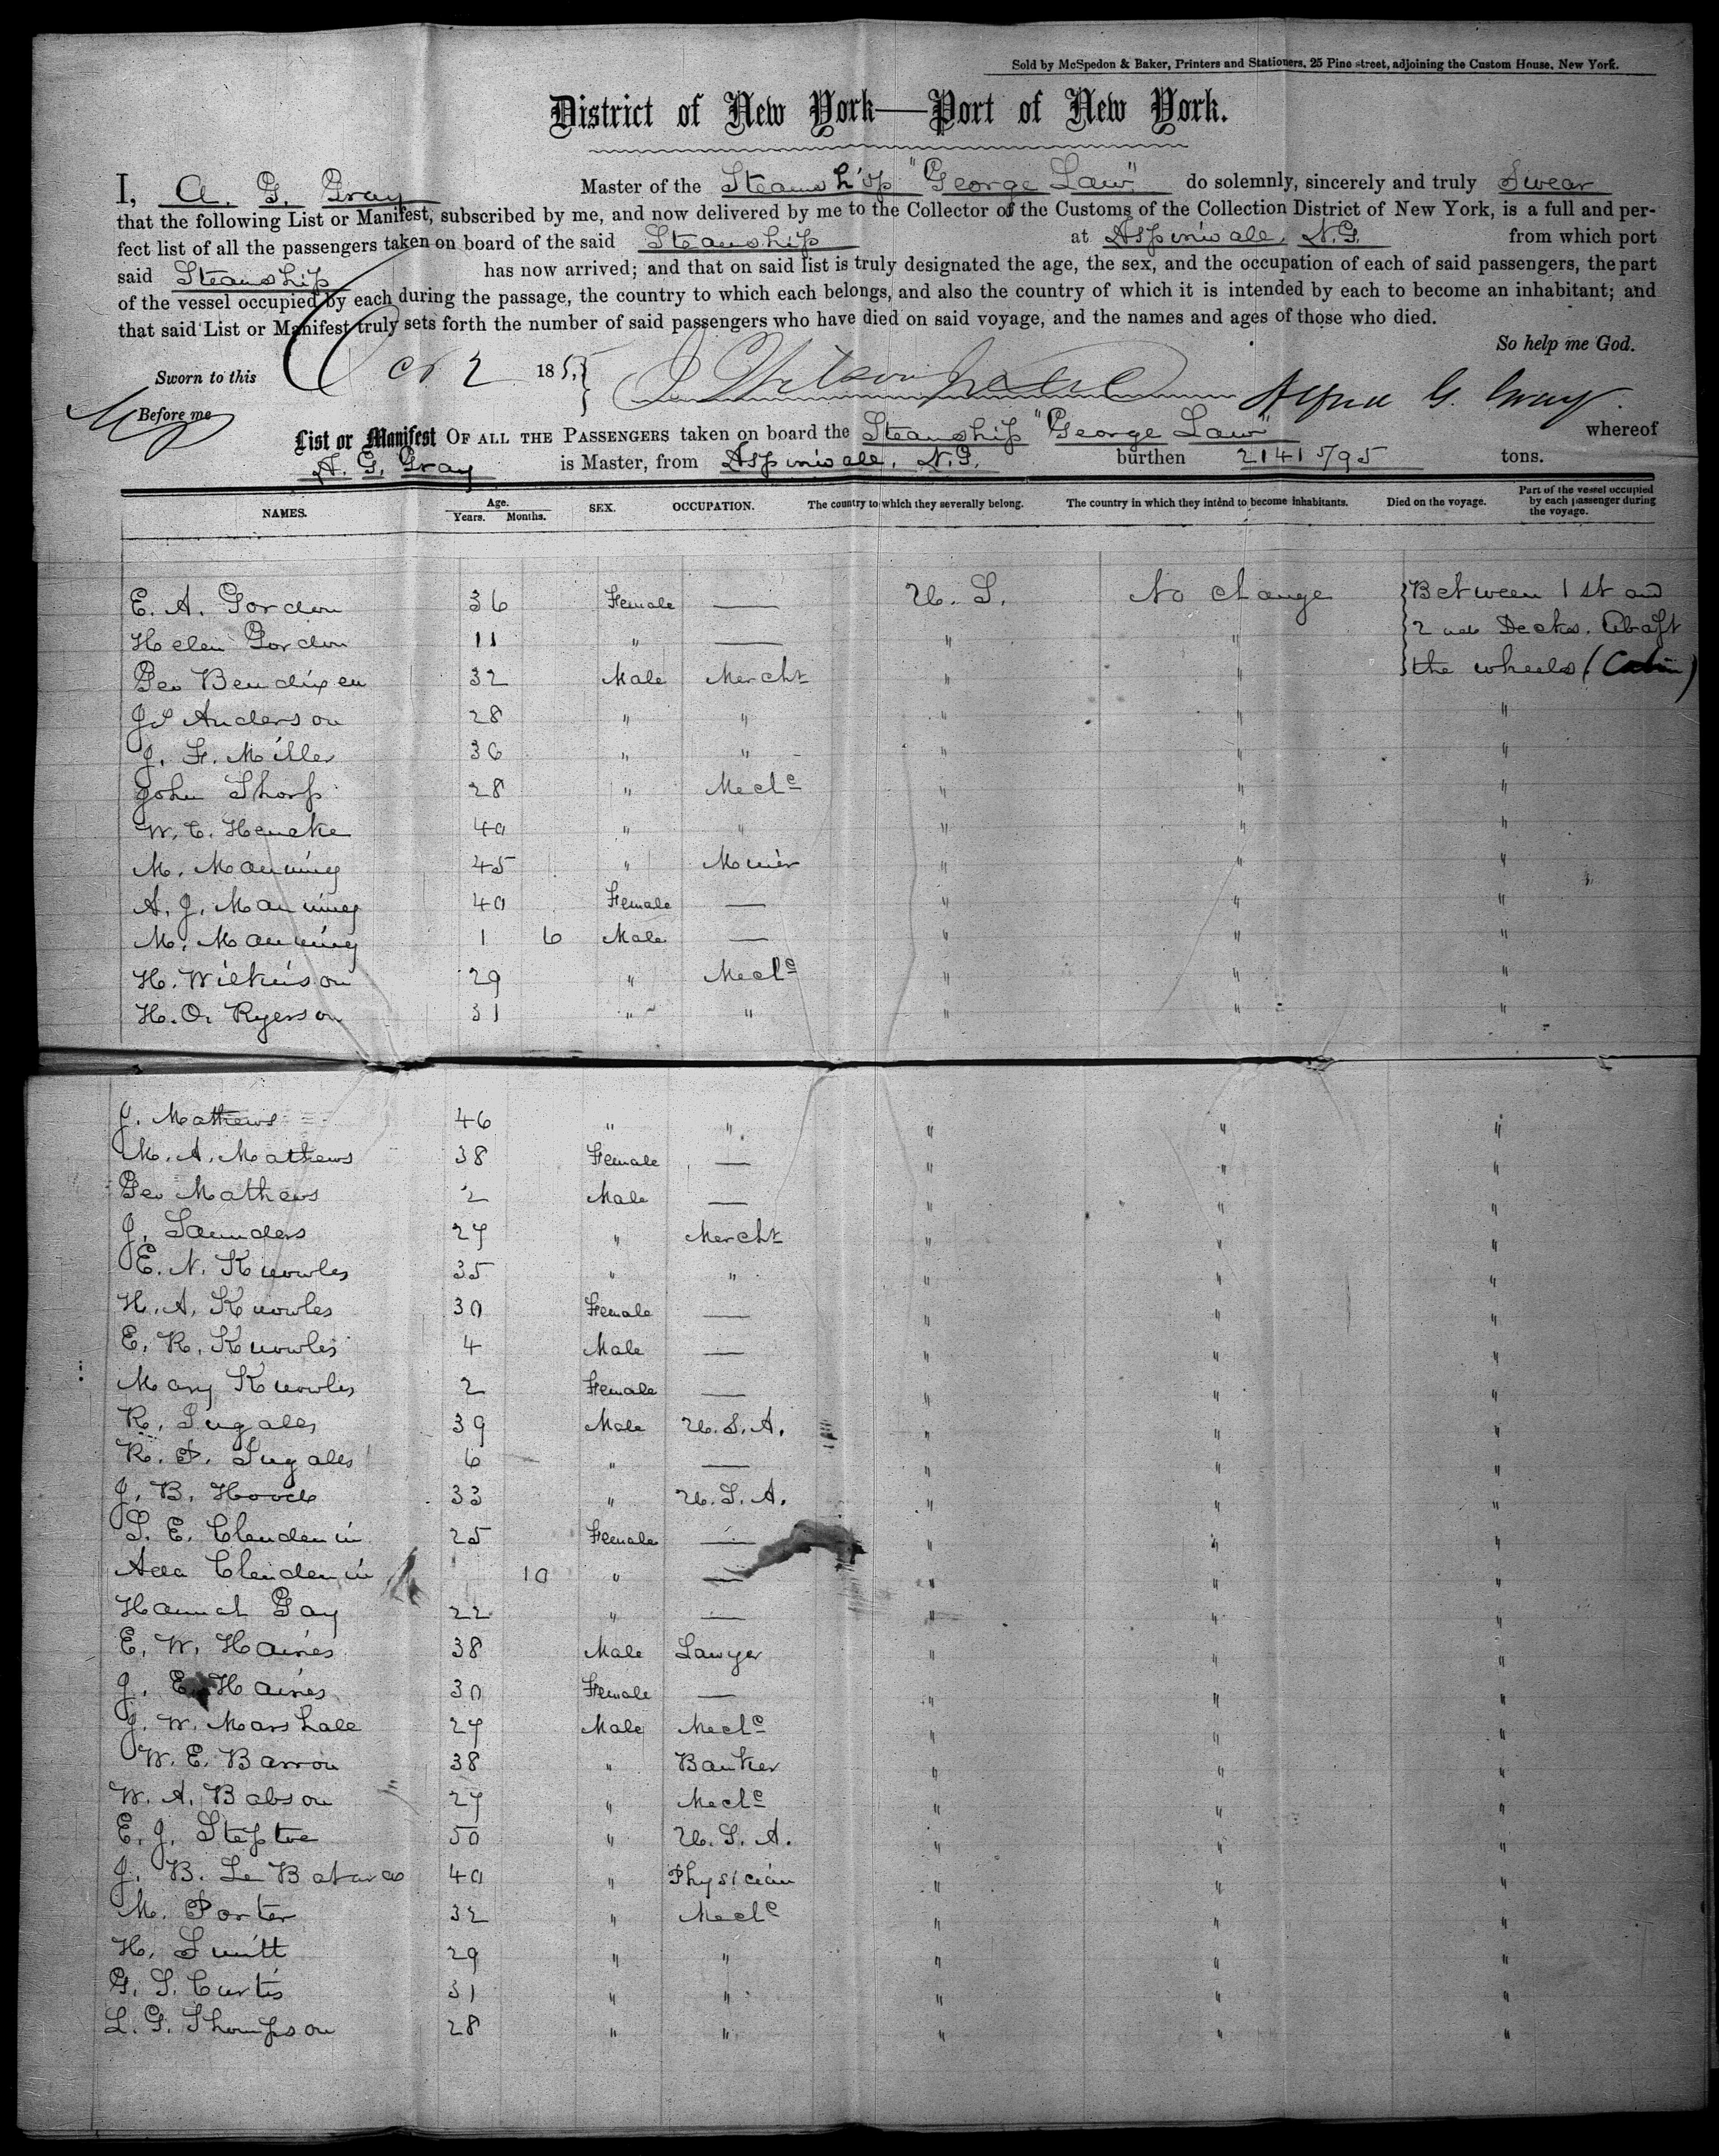 Sold by McSpedon & Baker, Printers and Stationers, 25 Pine street, adjoining the Custom House, New York.
District of New York—Port of New York.
I, A. G. Gray Master of the Steamship "George Law" do solemnly, sincerely and truly Swear
that the following List or Manifest, subscribed by me, and now delivered by me to the Collector of the Customs of the Collection District of New York, is a full and per-
fect list of all the passengers taken on board of the said Steamship at Aspinwall, N.G. from which port
said Steamship has now arrived; and that on said list is truly designated the age, the sex, and the occupation of each of said passengers, the part
of the vessel occupied by each during the passage, the country to which each belongs, and also the country of which it is intended by each to become an inhabitant; and
that said List or Manifest truly sets forth the number of said passengers who have died on said voyage, and the names and ages of those who died.
So help me God.
Sworn to this Oct 2 1855 } Alfred G. Gray
Before me
List or Manifest OF ALL THE PASSENGERS taken on board the Steamship "George Law" whereof
A. G. Gray is Master, from Aspinwall, N.G. burthen 2141 5/95 tons.
NAMES. Age. Years. Months. SEX. OCCUPATION. The country to which they severally belong. The country in which they intend to become inhabitants. Died on the voyage. Part of the vessel occupied by each passenger during the voyage.
E. A. Gordon 36 Female — U. S. No change } Between 1st and
Helen Gordon 11 " — " " } 2nd Decks. Abaft
Geo Bendixen 32 Male Mercht " " } the wheels (Cabin)
J S Anderson 28 " " " " "
J. F. Miller 36 " " " " "
John Thorp 28 " Mechc " " "
W. C. Hencke 40 " " " " "
M. Manning 45 " Minér " " "
A. J. Manning 40 Female — " " "
M. Manning 1 6 Male — " " "
H. Wilkinson 29 " Mechc " " "
H. O. Ryerson 31 " " " " "
J. Mathews 46 " " " " "
M. A. Mathews 38 Female — " " "
Geo Mathews 2 Male — " " "
J. Saunders 27 " Mercht " " "
E. N. Knowles 35 " " " " "
H. A. Knowles 30 Female — " " "
E. R. Knowles 4 Male — " " "
Mary Knowles 2 Female — " " "
R. Ingalls 39 Male U. S. A. " " "
R. P. Ingalls 6 " — " " "
J. B. Hood 33 " U. S. A. " " "
S. E. Clendenin 25 Female — " " "
Ada Clendenin 10 " — " " "
Hannah Gay 22 " — " " "
E. W. Haines 38 Male Lawyer " " "
J. E. Haines 30 Female — " " "
J. W. Marshall 27 Male Mechc " " "
W. E. Barron 38 " Banker " " "
W. A. Babson 27 " Mechc " " "
E. J. Steptoe 50 " U. S. A. " " "
J. B. Le Batard 40 " Physician " " "
M. Porter 32 " Mechc " " "
H. Smith 29 " " " " "
G. S. Curtis 31 " " " " "
L. G. Thompson 28 " " " " "